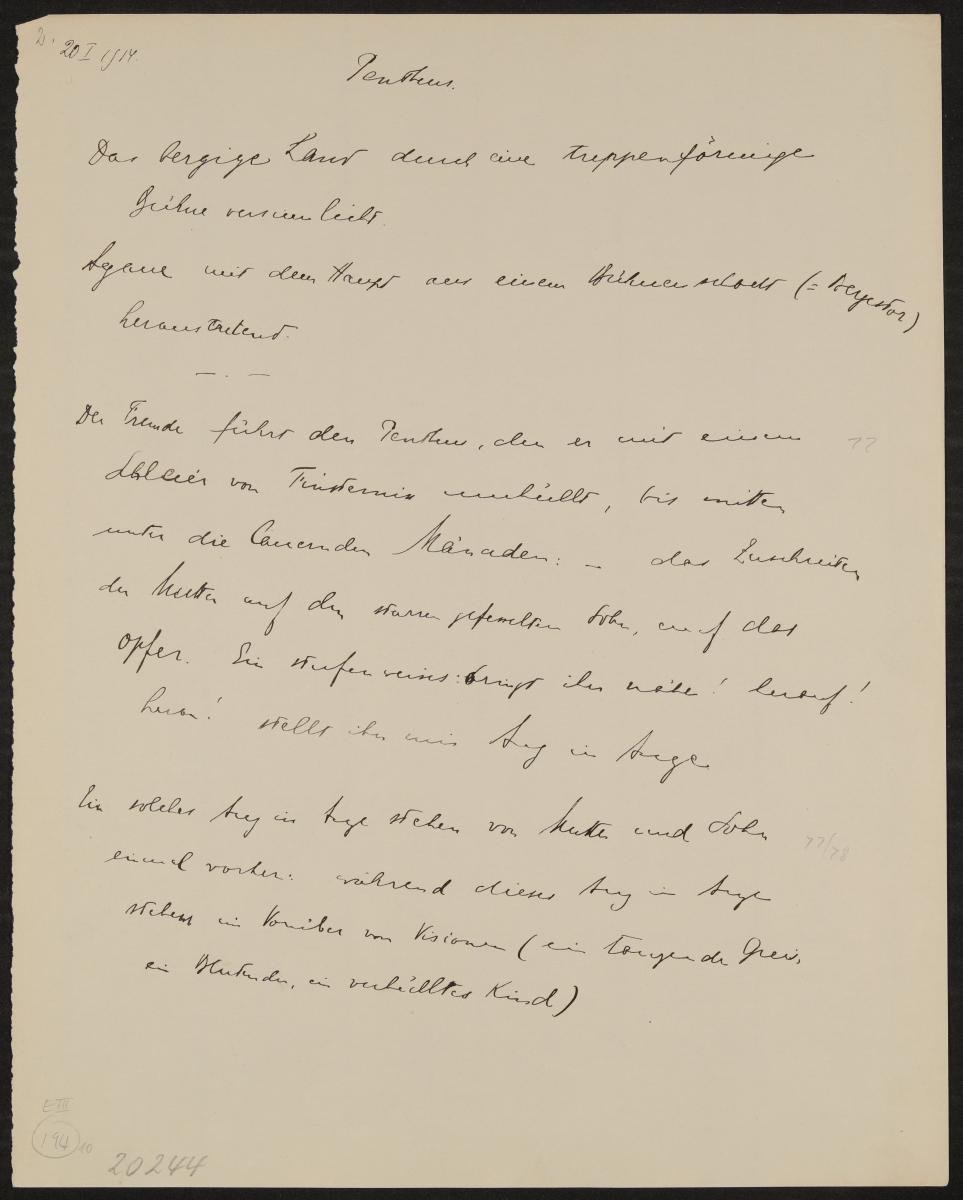 20 I 1914.
Pentheus.
Das bergige Land durch eine treppenförmige
Bühne versinnlicht.
Agaue mit dem Haupt aus einem Bühnenschacht (= Bergestor)
heraustretend.
— . —
Der Fremde führt den Pentheus, den er mit einem
77
Schleier von Finsternis umhüllt, bis mitten
unter die lauernden Mänaden: – das Zuschreiten
der Mutter auf den starren gefesselten Sohn, auf das
Opfer. Ein stufenweises: bringt ihn näher! herauf!
heran! stellt ihn mir Aug in Auge
Ein solches Aug in Auge stehen von Mutter und Sohn
77/78
einmal vorher: während dieses Aug in Auge
stehens ein Vorüber von Visionen (ein tanzender Greis,
ein Blutender, ein verhülltes Kind)
E III
194
10
20244